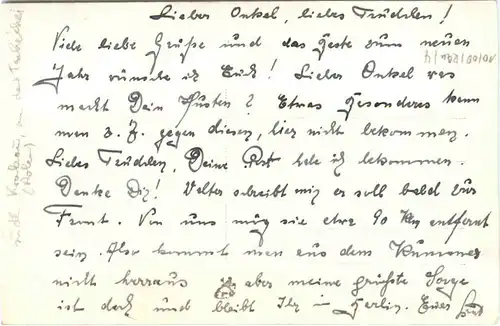 Lieber Onkel, liebes Trudchen!
Viele liebe Grüße und das Beste zum neuen
Jahr wünsche ich Euch! Lieber Onkel was
macht Dein Husten? Etwas besonderes kann
man z. Z. gegen diesen, hier nicht bekommen.
Liebes Trudchen, Deine Post habe ich bekommen.
Danke Dir! Walter schreibt mir er soll bald zur
Front. Von uns mag sie etwa 90 km entfernt
sein. Also kommt man aus dem Kummer
nicht herraus aber meine größte Sorge
ist doch und bleibt Ihr in Berlin. Euer
südl. Krakau, an der
(Polen)